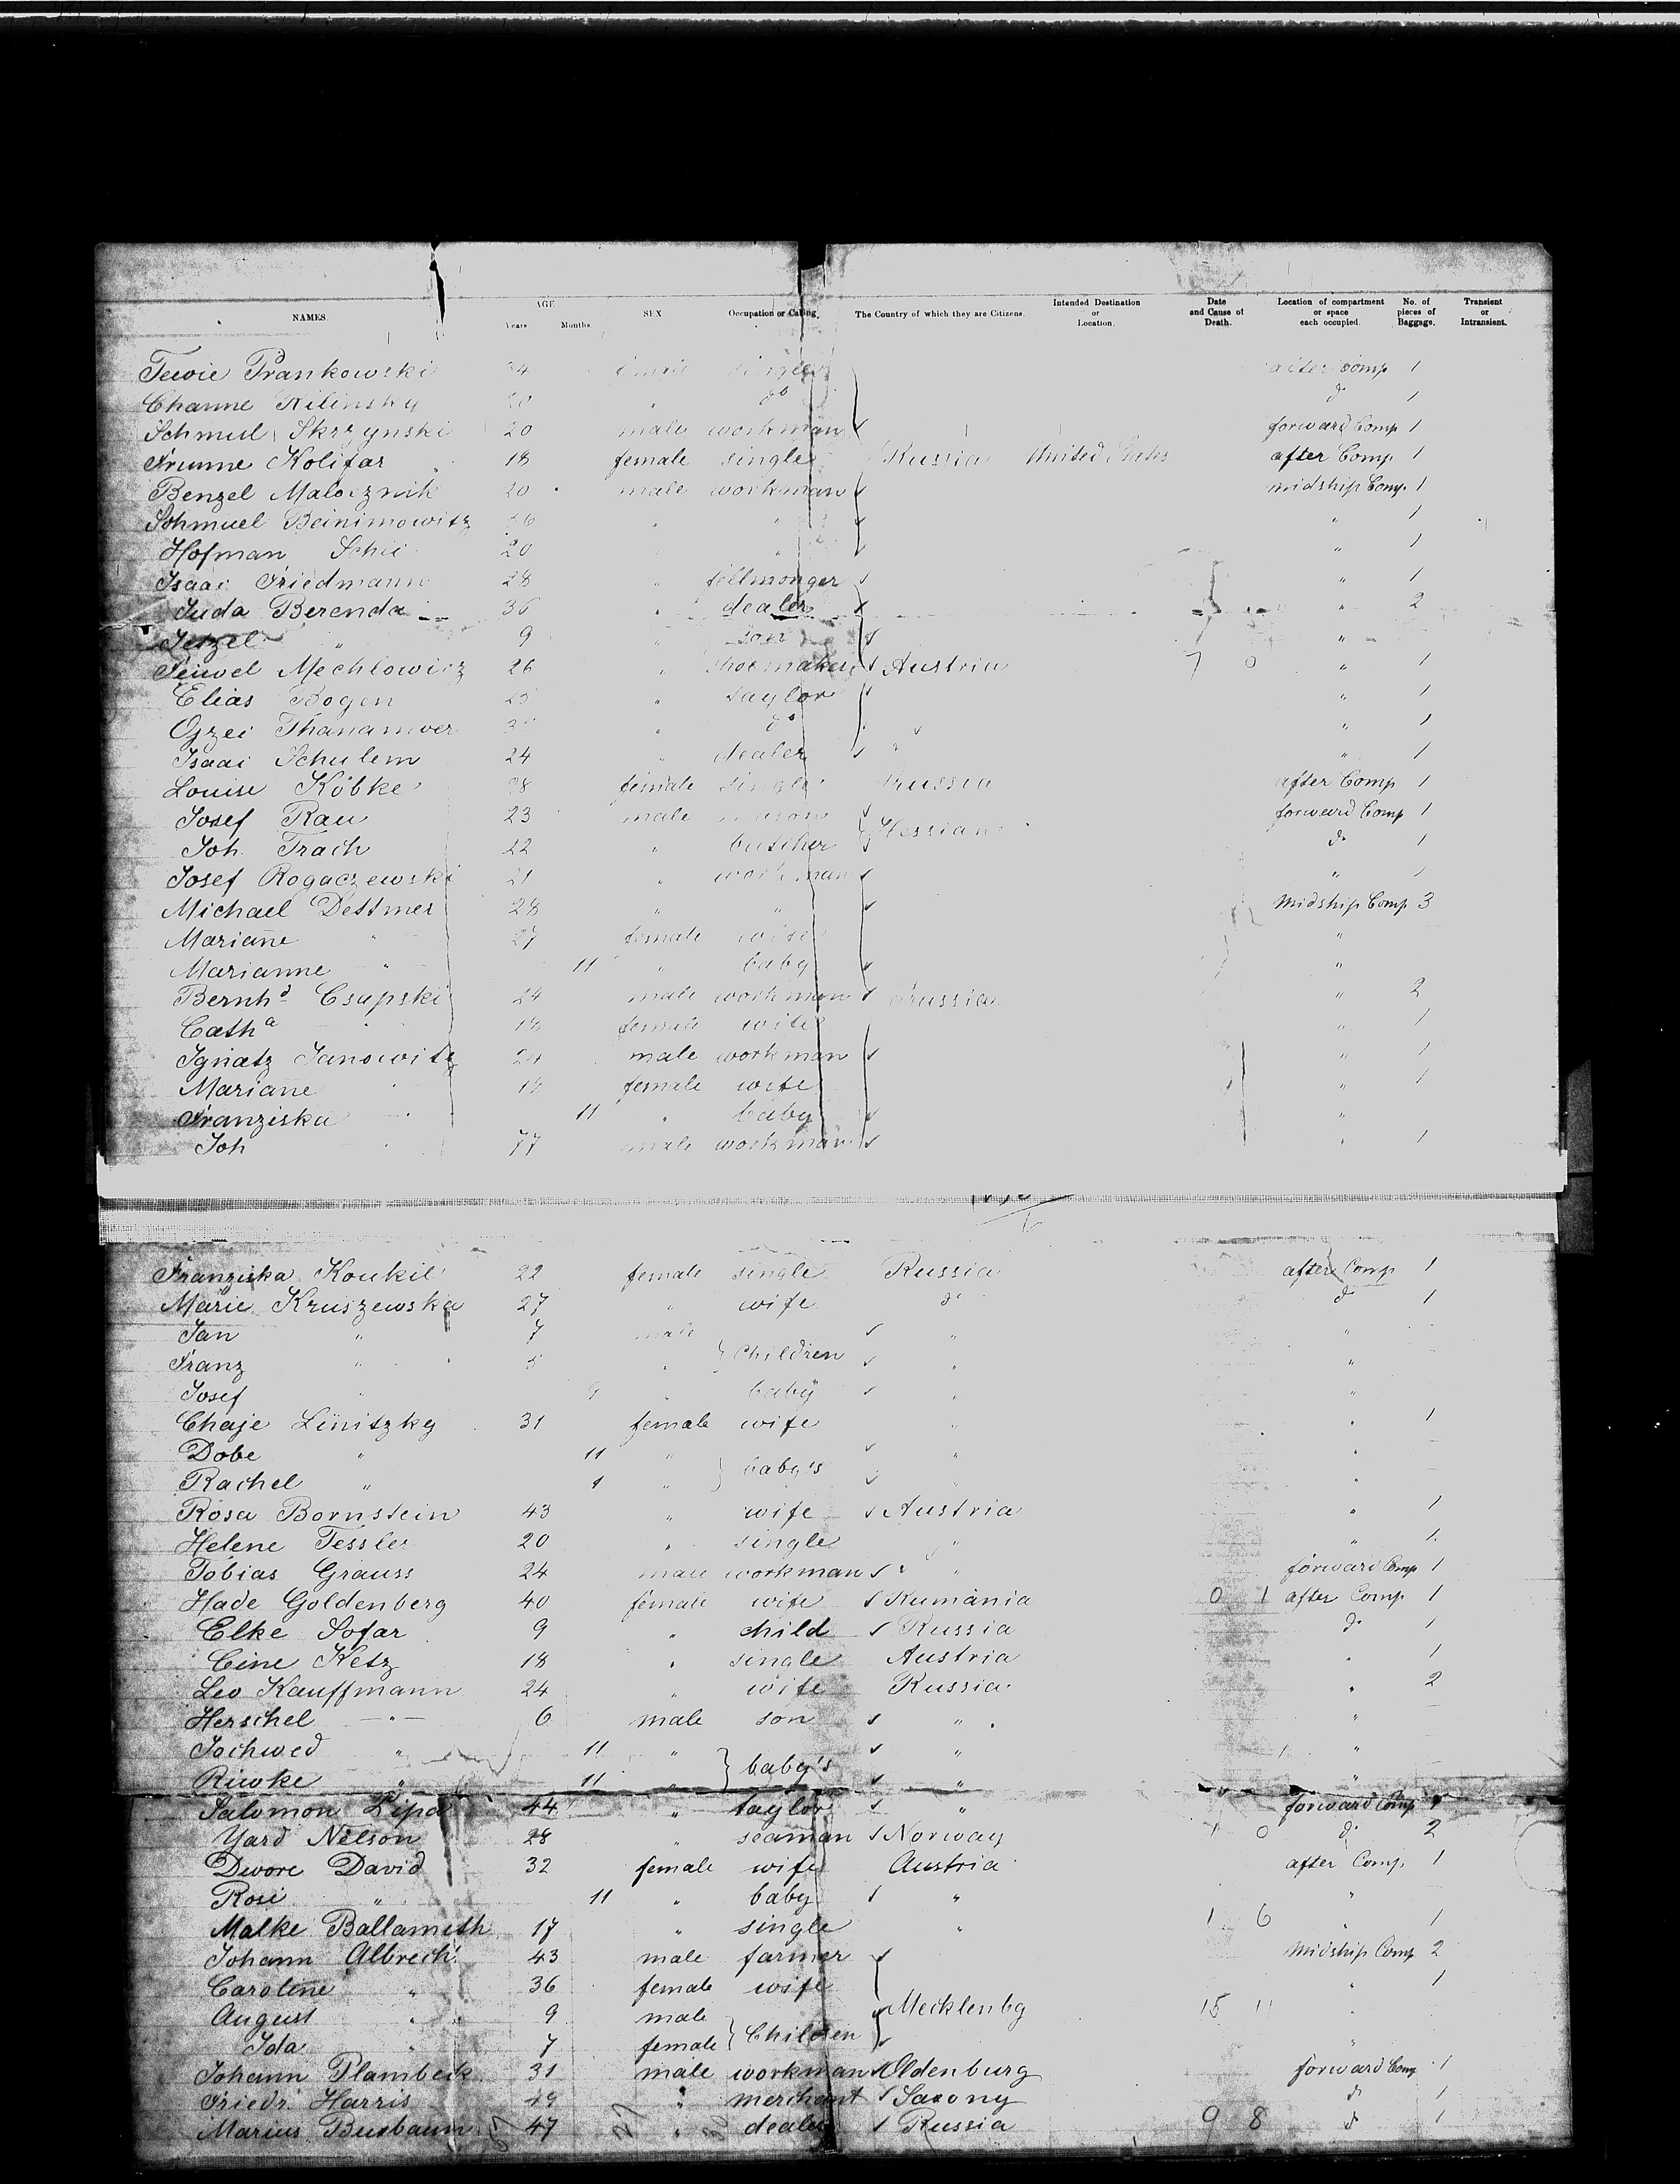 NAMES. AGE Years Months. SEX Occupation or Calling. The Country of which they are Citizens. Intended Destination or Location. Date and Cause of Death. Location of compartment or space each occupied. No. of pieces of Baggage. Transient or Intransient.
Tewie Prankowski single after comp 1
Channe Kilinsky do do 1
Schmul Skrzynski 20 male workman forward Comp 1
Frume Kolifar 18 female single Russia United States after Comp 1
Benzel Malocznik 20 male workman midship Comp. 1
Schmuel Beinimowitz " " " 1
Hofman Schie 20 " " " 1
Isaac Friedmann 28 " fellmonger " 1
Juda Berenda 36 " dealer " 2
Jetzel " 9 " son "
Feiwel Mechlowicz 26 " shoemaker Austria 7 0 " 1
Elias Bogen 25 " taylor " 1
" do " 1
Isaac Schulem 24 " dealer " " 1
Louise Köbke 28 female single Russia after Comp 1
Josef Rau 23 male mason forward Comp 1
Joh. Trach 22 " butcher Hessian do 1
Josef Rogaczewski 21 " workman " 1
Michael Dettmer 28 " " midship Comp 3
Mariane " 27 female wife "
Marianne " 11 " baby "
Bernhd Csapski 24 male workman Prussia " 2
Catha " 19 female wife " 1
Ignatz Janowitz 24 male workman " 1
Mariane " 19 female wife " 1
Franziska " 11 " baby "
Joh " 77 male workman " 1
Franziska Koukil 22 female single Russia after Comp 1
Marie Kruszewska 27 " wife do do 1
Jan " 7 male " "
Franz " 5 " children " "
Josef " 9 " baby " "
Chaje Linitzky 31 female wife " " 1
Dobe " 11 " " "
Rachel " 1 " baby's "
Rosa Bornstein 43 " wife Austria " 1
Helene Tessler 20 " single " " 1
Tobias Grauss 24 male workman " forward Comp 1
Hade Goldenberg 40 female wife Rumania 0 1 after Comp 1
Elke Sofar 9 " child Russia do 1
Cine Ketz 18 " single Austria " 1
Leo Kauffmann 24 " wife Russia " 2
Herschel " 6 male son " "
Jochwed " 11 " " "
Riwke " 11 " baby's " "
Salomon Lipa 44 " taylor " forward Comp 1
Yard Nelson 28 " seaman Norway 1 0 do 2
Dwore David 32 female wife Austria after Comp. 1
Rosi " 11 " baby " "
Malke Ballameth 17 " single " 1 6 " 1
Johann Albrecht 43 male farmer midship Comp 2
Caroline " 36 female wife " 1
August " 9 male Mecklenbg 15 11 "
Ida " 7 female Children "
Johann Plambeck 31 male workman Oldenburg forward Comp 1
Friedr Harris 49 " merchant Saxony do 1
Marius Buxbaum 47 " dealer Russia 9 8 do 1